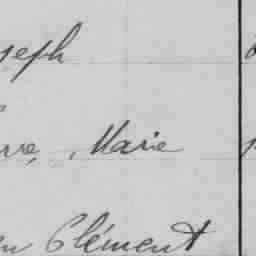 seph
rre, Marie
en Clément